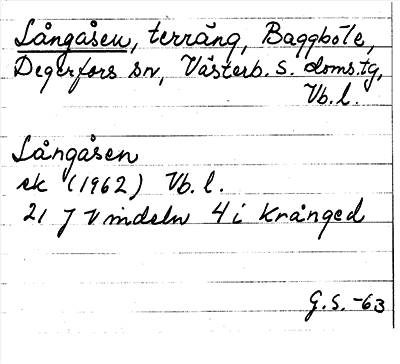 Långåsen, terräng, Baggböle,
Degerfors sn, Västerb. s. doms.tg,
Vb. l.
Långåsen
ek (1962) Vb. l.
21 J Vindeln 4 i Krånged
G.S. -63